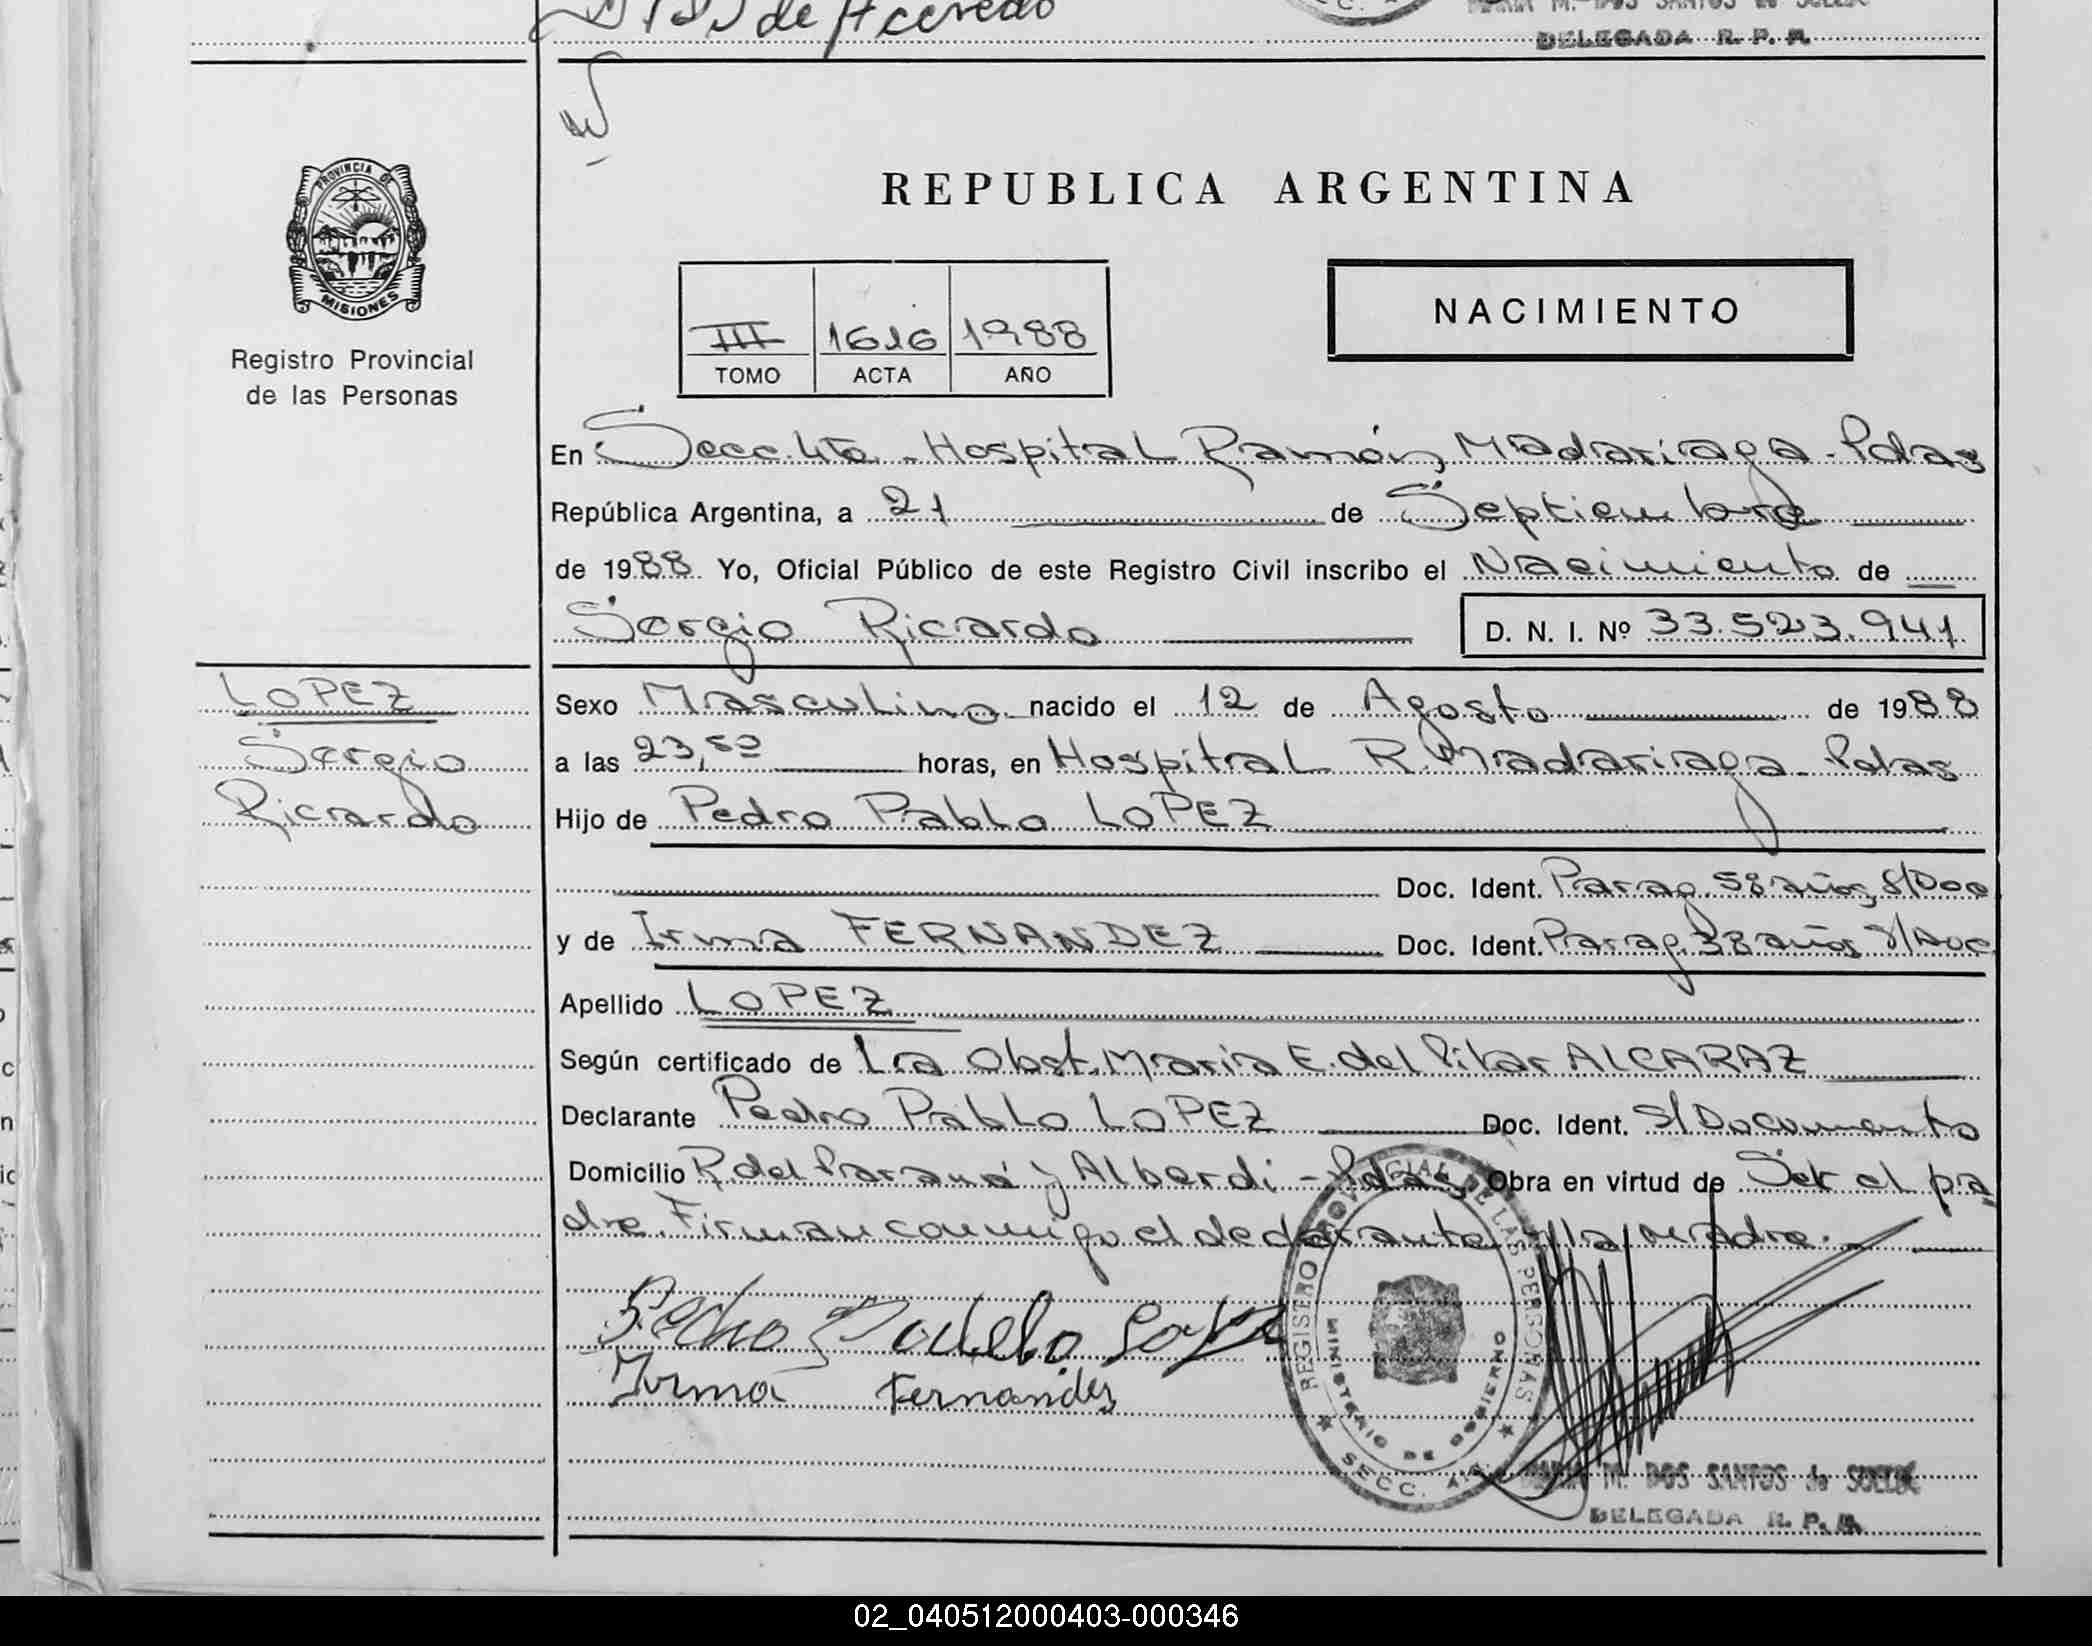 de Acevedo
DELEGADA R. P. P.
PROVINCIA DE
MISIONES
Registro Provincial
de las Personas
REPUBLICA ARGENTINA
III 1616 1988
TOMO ACTA AÑO
NACIMIENTO
En Secc. 4ta. - Hospital Ramón Madariaga - Pdas
República Argentina, a 21 de Septiembre
de 1988 Yo, Oficial Público de este Registro Civil inscribo el Nacimiento de
Sergio Ricardo D. N. I. Nº 33.523.941
LOPEZ
Sergio
Ricardo
Sexo Masculino nacido el 12 de Agosto de 1988
a las 23,50 horas, en Hospital R. Madariaga - Pdas
Hijo de Pedro Pablo LOPEZ
Doc. Ident. Parag. 58 años, s/Doc
y de Irma FERNANDEZ Doc. Ident. Parag. 38 años s/Doc
Apellido LOPEZ
Según certificado de La Obst. María E. del Pilar ALCARAZ
Declarante Pedro Pablo LOPEZ Doc. Ident. s/Documento
Domicilio R. del Paraná y Alberdi - Pdas, Obra en virtud de Ser el pa
dre. Firman conmigo el declarante y la madre.
Pedro Pablo Lopez
Irma Fernandez
REGISTRO PROVINCIAL DE LAS PERSONAS
MINISTERIO DE GOBIERNO
SECC. 4ta.
M. DOS SANTOS de
DELEGADA R. P. P.
02_040512000403-000346